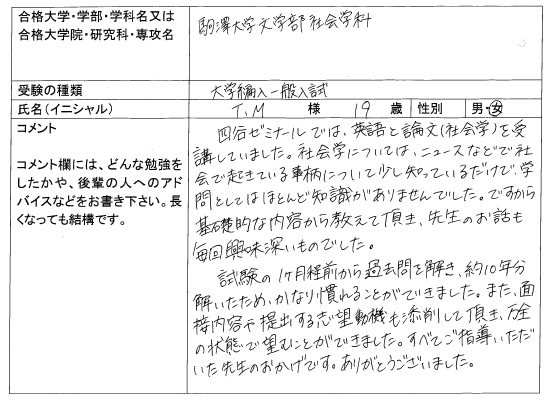 合格大学・学部・学科名又は
合格大学院・研究科・専攻名
駒澤大学文学部社会学科
受験の種類
大学編入一般入試
氏名(イニシャル)
T.M 様 19 歳 性別 男・女
コメント
コメント欄には、どんな勉強を
したかや、後輩の人へのアド
バイスなどをお書き下さい。長
くなっても結構です。
四谷ゼミナールでは、英語と論文(社会学)を受
講していました。社会学については、ニュースなどで社
会で起きている事柄について少し知っているだけで、学
問としてはほとんど知識がありませんでした。ですから
基礎的な内容から教えて頂き、先生のお話も
毎回興味深いものでした。
試験の1ヶ月程前から過去問を解き、約10年分
解いたため、かなり慣れることができました。また、面
接内容や提出する志望動機も添削して頂き、万全
の状態で望むことができました。すべてご指導いただ
いた先生のおかげです。ありがとうございました。